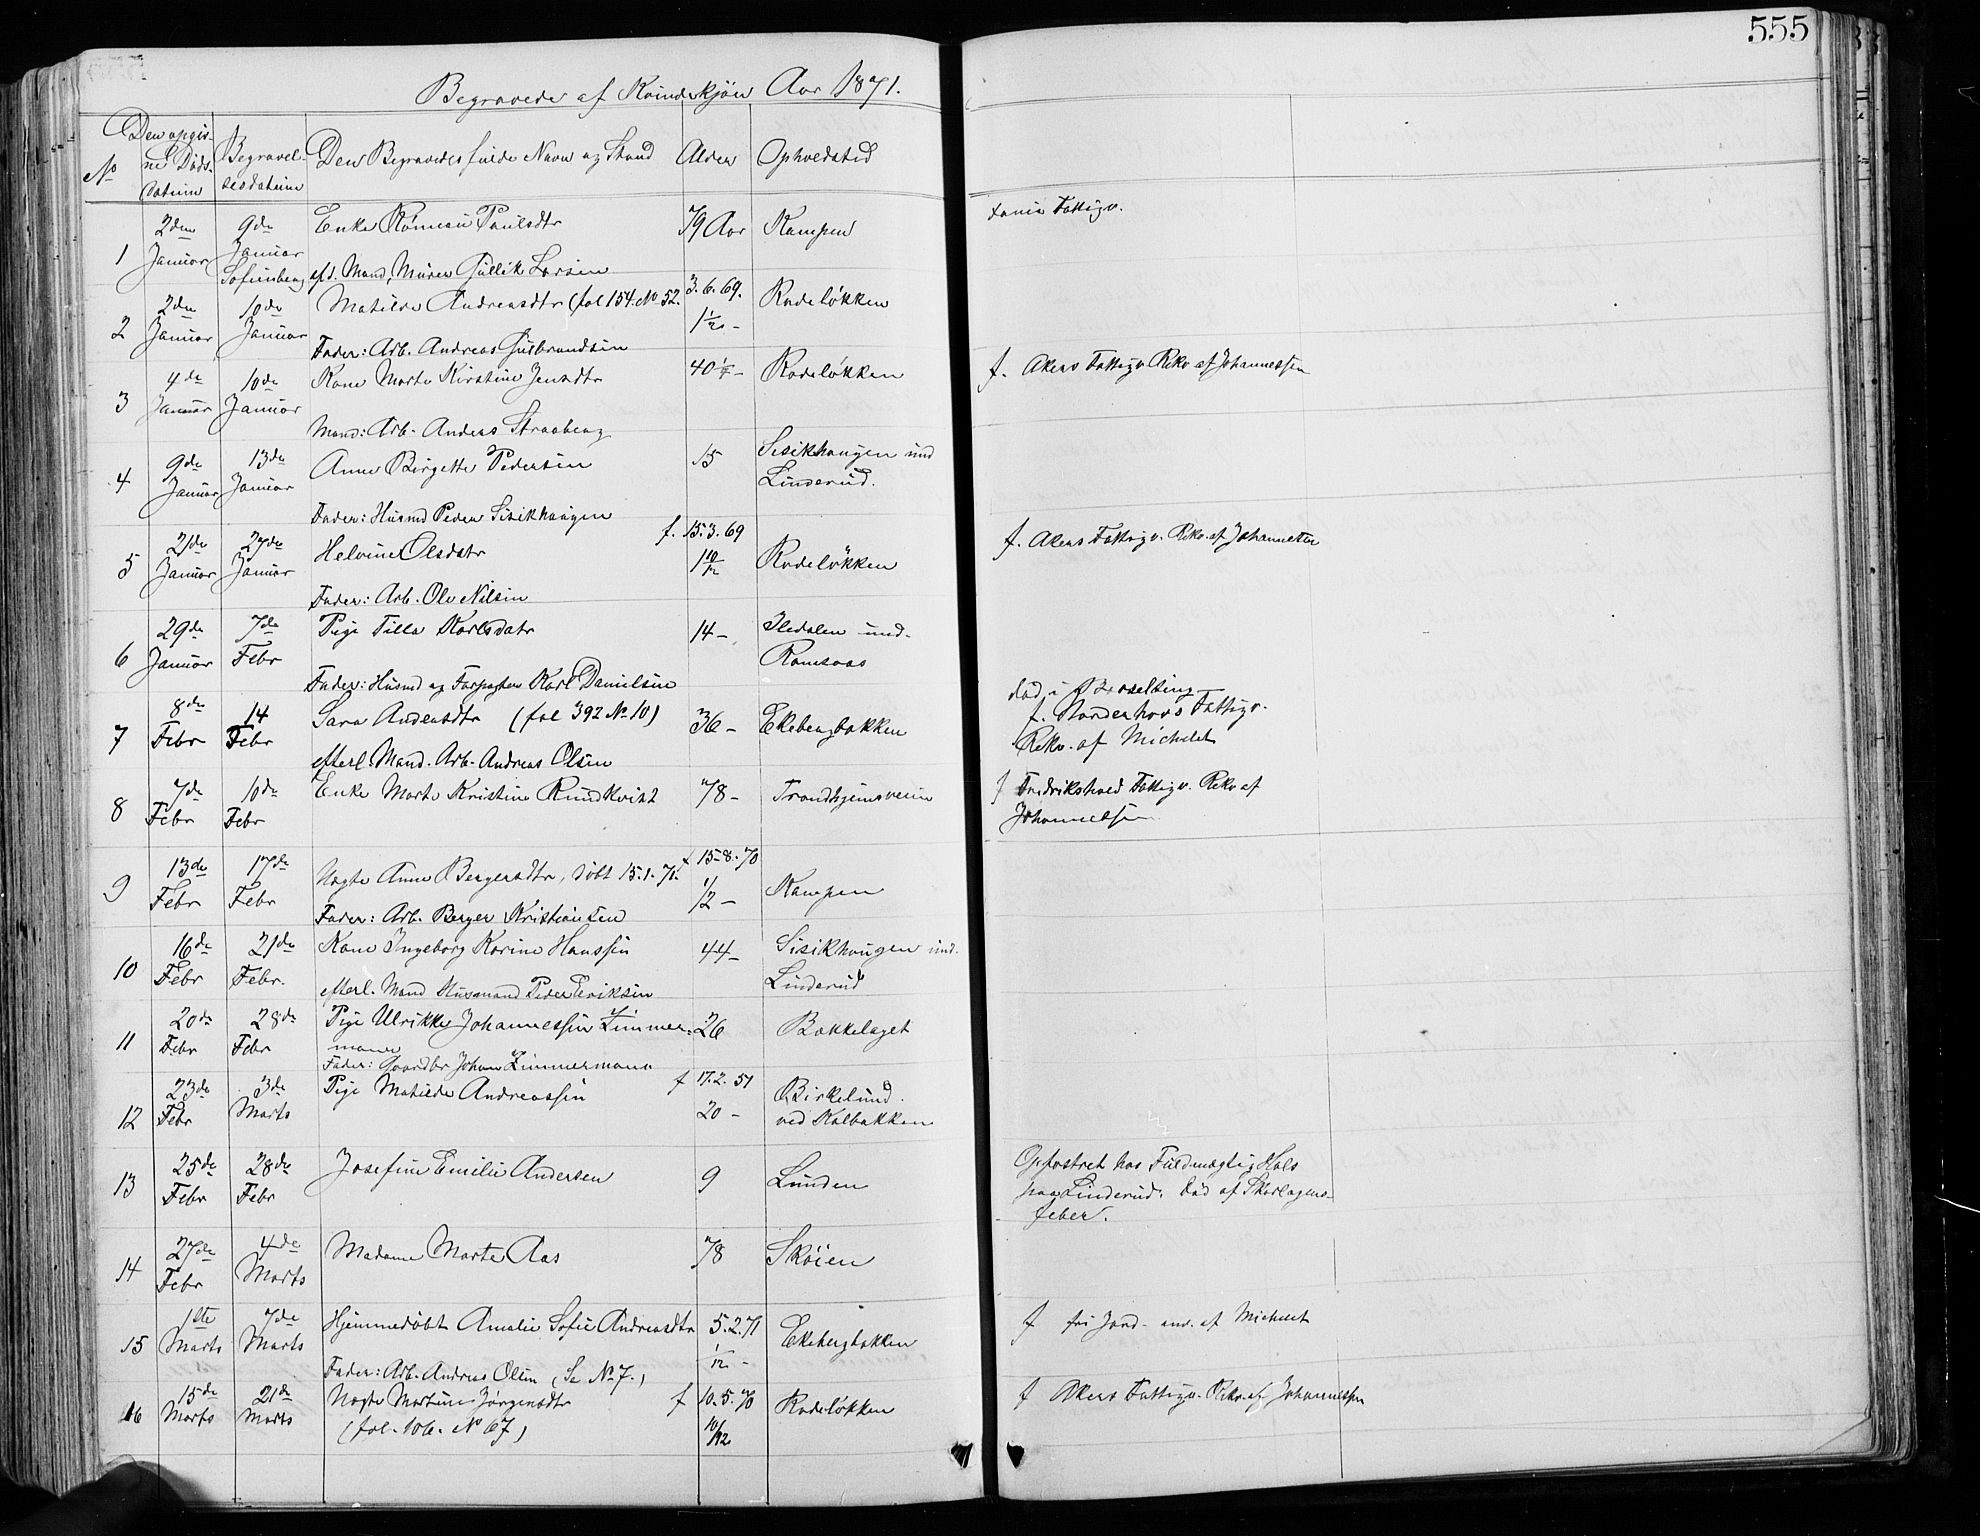 555
Begravede af Kvindekjøn Aar 1871.
No
Den opgiv-
ne Døds-
datum
Begravel-
sesdatum
Den Begravedes fulde Navn og Stand
Alder
Opholdsted
1
2den Januar
9de Januar Sofienberg
Enke Paulsdtr
79 Aar
Kampen
Fattigv.
efd. Mand, Murer Gullik Larsen
2
2den Januar
10de Januar
Matilde Andreasdtr (fol 154. No 52.
3.6.69.
1½ -
Rodeløkken
Fader: Arb. Andreas Gulbrandsen
3
4de Januar
10de Januar
Kone Marte Kirstine Jensdtr
40¼ -
Rodeløkken
f. Akers Fattigv Rekv af Johannessen
Mand: Arb. Anders Straaberg
4
9de Januar
13de Januar
Anne Birgette Pedersen
15
Sisikhaugen und
Linderud.
Fader: Husmd Peder Sisikhaugen
5
21de Januar
27de Januar
Helvine Olsdatr
f. 15.3.69
1 10/12
Rodeløkken
f. Akers Fattigv. Rekv. af Johannessen
Fader: Arb. Ole Nilsen
6
29de Januar
7de Febr
Pige Tilla Karlsdatr
14 -
Iledalen und.
Ramsaas
Fader: Husmd og Forpagter Karl Danielsen
7
8de Febr
14 Febr
Sara Andersdtr (fol 392 No 10)
36 -
Ekebergbakken
død i Barselseng
f. Norderhovs Fattigv.
Rekv. af Michelet
efterl. Mand. Arb. Andreas Olsen
8
7de Febr
10de Febr
Enke Marte Kristine Rundkvist
78 -
Trondhjemsveien
f Fredrikshald Fattigv. Rekv af
Johannessen
9
13de Febr
17de Febr
Uægte Anne Bergersdtr, døbt 15.1.71.
f 15-8.70
1/2 -
Kampen
Fader: Arb. Berger Kristiansen
10
16de Febr
21de Febr.
Kone Ingeborg Karine Hanssen
44 -
Sisikhaugen und.
Linderud
efterl. Mand Husmand Peder Eriksen
11
20de Febr
28de Febr
Pige Ulrikke Johannessen Zimmer-
mann
26
Bækkelaget
Fader: Gaardbr Johan Zimmermann
12
23de Febr
3de Marts
Pige Matilde Andreassen
f 17.2.51
20 -
Birkelund.
ved Kalbakken
13
25de Febr
28de Febr
Josefine Emilie Andersen
9
Lunden
Opfostret hos Fuldmægtig Hals
paa Linderud. død af Skarlagens-
feber.
14
27de Febr
4de Marts
Madame Marte Aas
78
Skøien
15
1ste Marts
7de Marts
Hjemmedøbt Amalie Sofie Andreasdtr
5.2.71
1/12 -
Ekebergbakken
f fri Jord - anv. af Michelet
Fader: Arb. Andreas Olsen (Se No 7.)
16
15de Marts
21de Marts
Uægte Martine Jørgensdtr
f 10.5.70
10/12
Rodeløkken
f Akers Fattigv. Rekv. af Johannessen
(fol. 106. No 67)